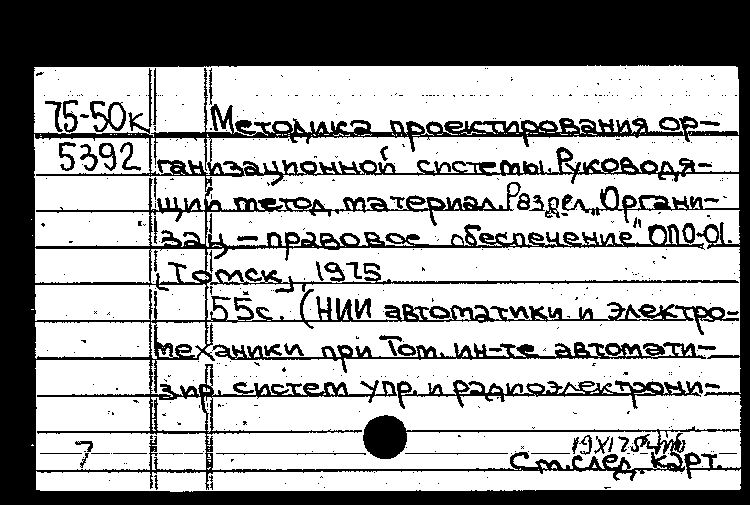 75-50к Методика проектирования ор-
5392 ганизационной системы. Руководя-
щий метод. материал. Раздел „Органи-
зац-правовое обеспечение" ОПО-01.
[Томск], 1975.
55с. (НИИ автоматики и электро-
механики при Том. ин-те автомати-
зир. систем упр. и радиоэлектрони-
7
Ст. след. карт.